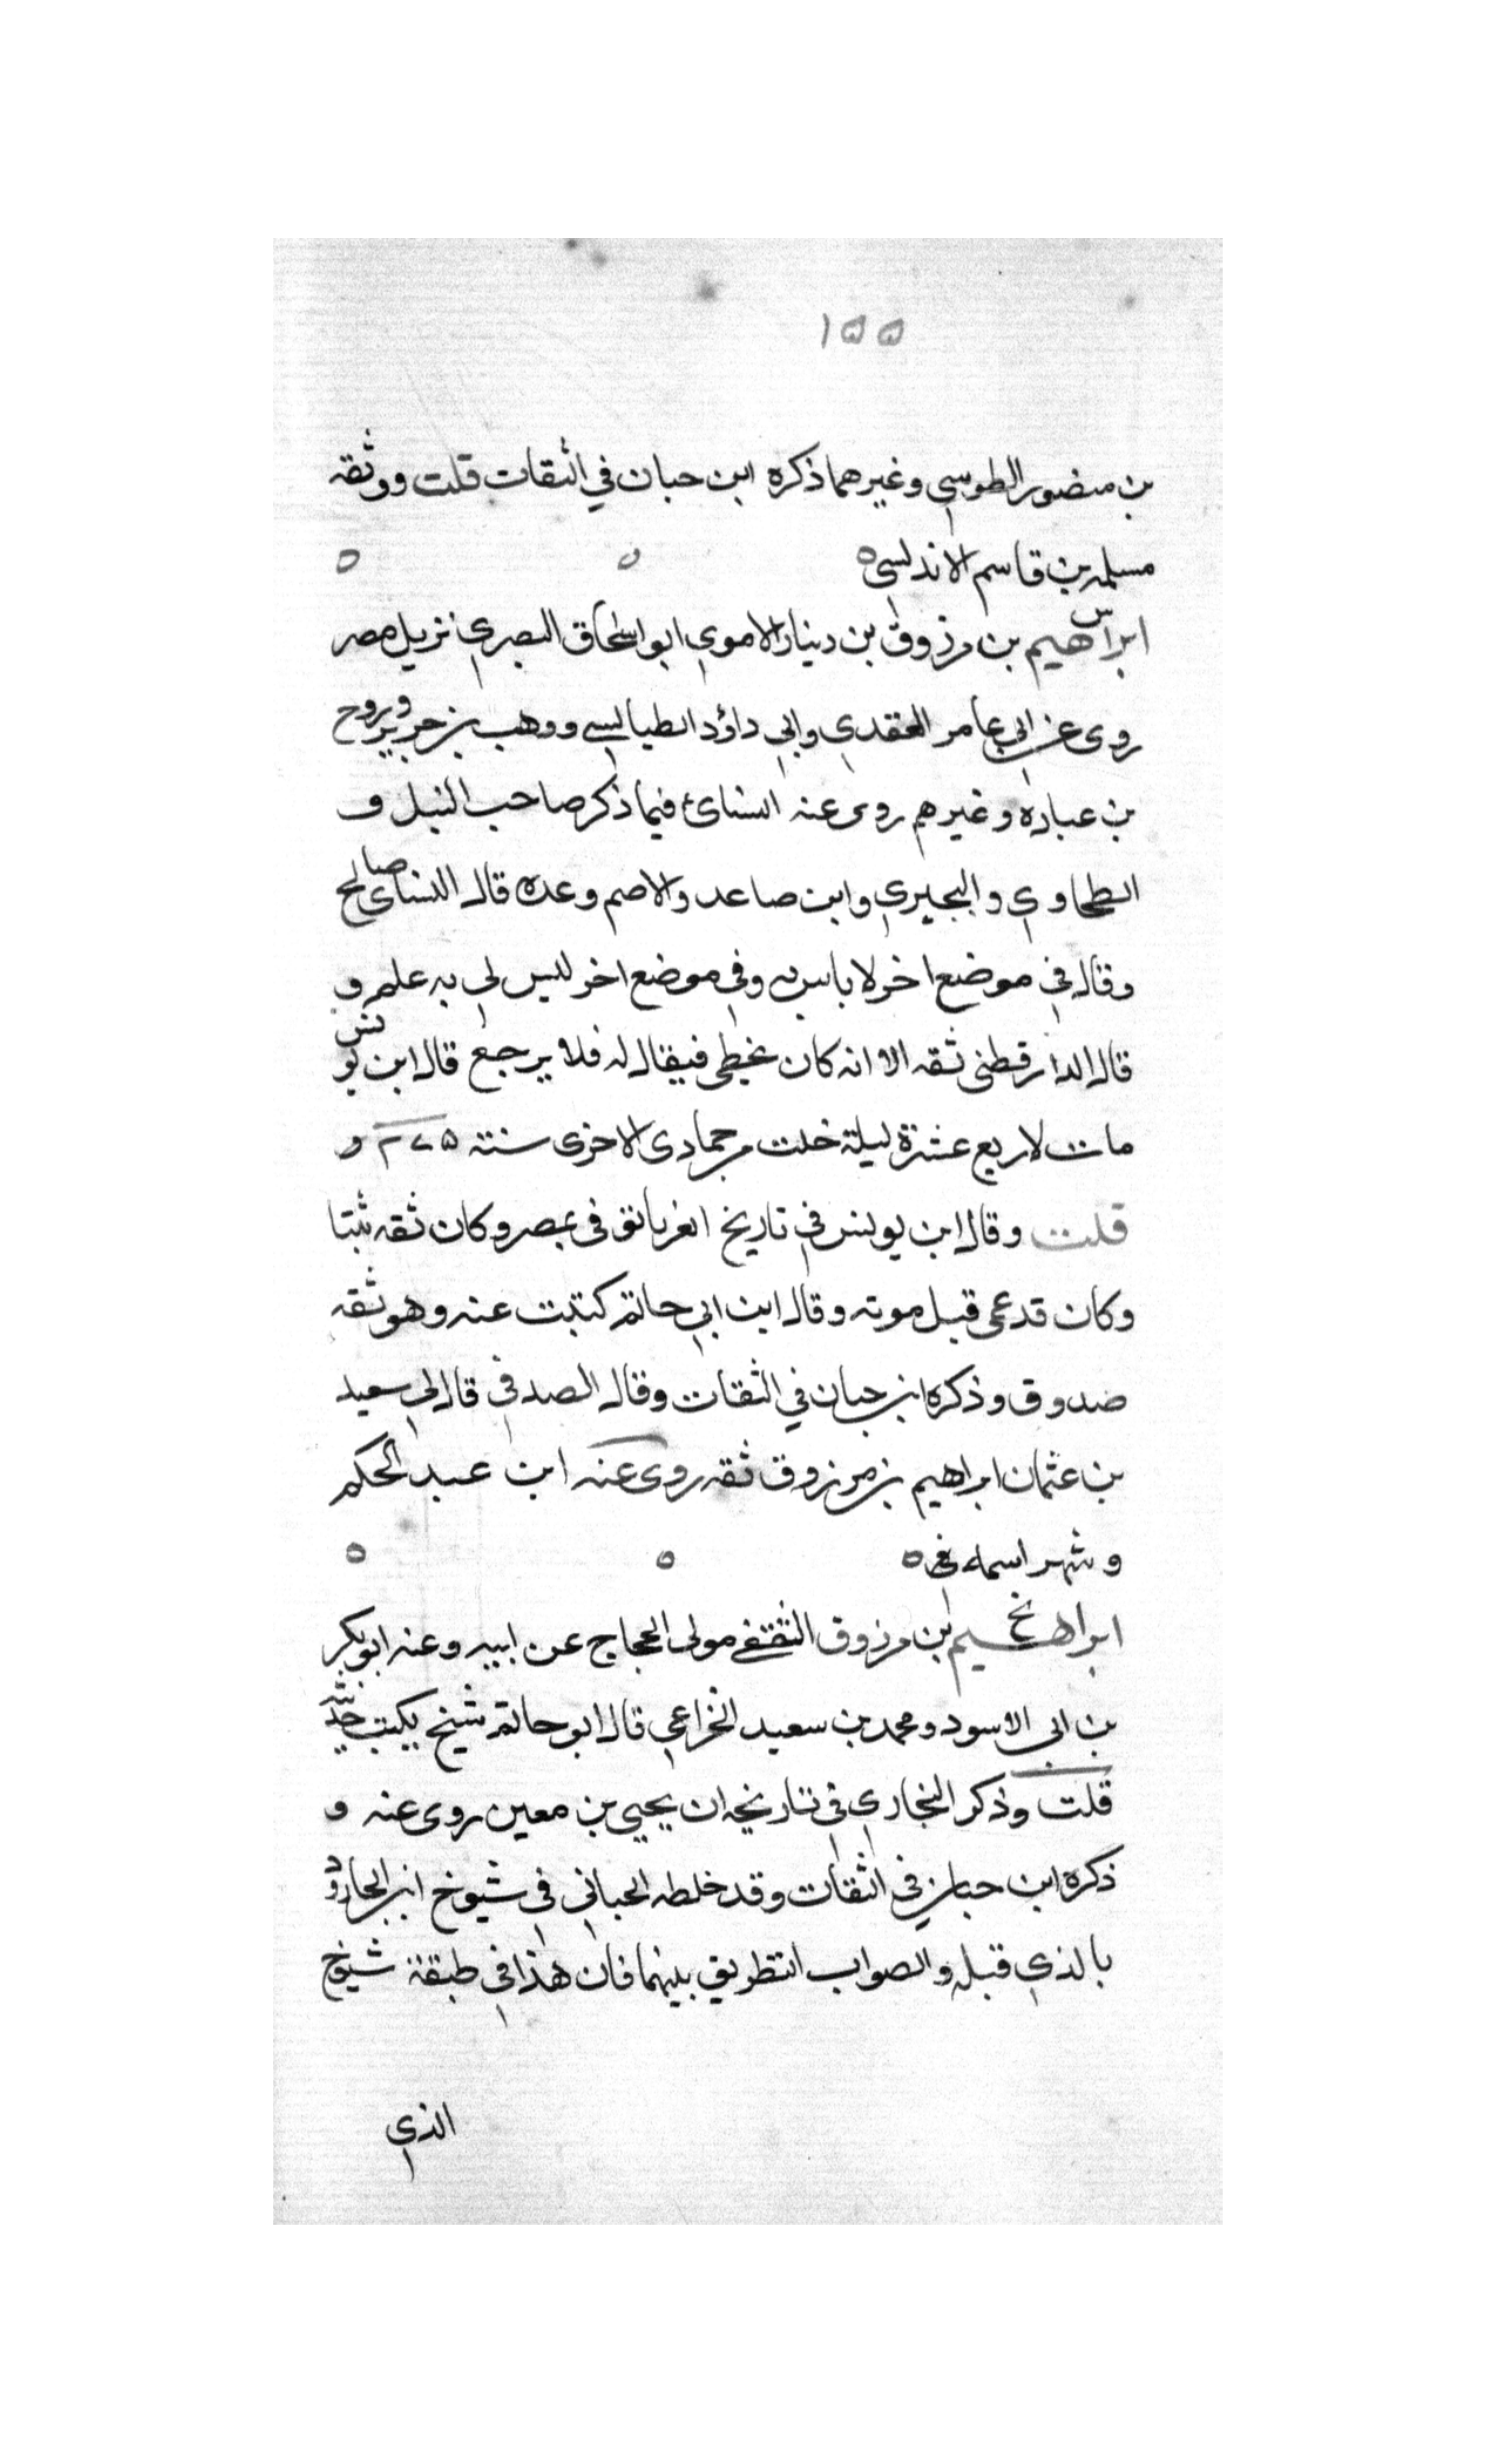 ١٥٥
بن منصور الطوسي وغيرهما ذكره ابن حبان في الثقات قلت ووثقه
مسلمه بن قاسم الاندلسي ه ه ه
س
ابراهيم بن مرزوق بن دينار الاموي ابو اسحاق البصري نزيل مصر
روى عن ابي عامر العقدي وابي داؤد الطيالسي ووهب بن جرير وروح
بن عباده وغيرهم روى عنه النسائ فيما ذكر صاحب النبل و
الطحاوي والبجيري وابن صاعد والاصم وعده قال النساى صالح
وقال في موضع اخر لا باس به وفي موضع اخر ليس لي به علم و
قال الدارقطنى ثقه الا انه كان يخطى فيقال له فلا يرجع قال ابن يونس
مات لاربع عشرة ليلة خلت من جمادى الاخرى سنته و
قلت وقال ابن يونس في تاريخ الغربا توفى بمصر وكان ثقه ثبتا
وكان قد عمى قبل موته وقال ابن ابي حاتم كتبت عنه وهو ثقه
صدوق وذكره ابن حبان في الثقات وقال الصدفي قال لي سعيد
بن عثمان ابراهيم بن مرزوق ثقه روى عنه ابن عبد الحكم
وشهر اسمه في ه ه ه
خ
ابراهيم بن مرزوق الثقفي مولى الحجاج عن ابيه وعنه ابو بكر
بن ابى الاسود ومحمد بن سعيد الخزاعي قال ابو حاتم شيخ يكتب حديثه
قلت وذكر البخاري في تاريخه ان يحيي بن معين روى عنه و
ذكره ابن حبان في الثقات وقد خلطه الجياني في شيوخ ابن الجارود
بالذي قبله والصواب التفريق بينهما فان هذا في طبقة شيوخ
الذي